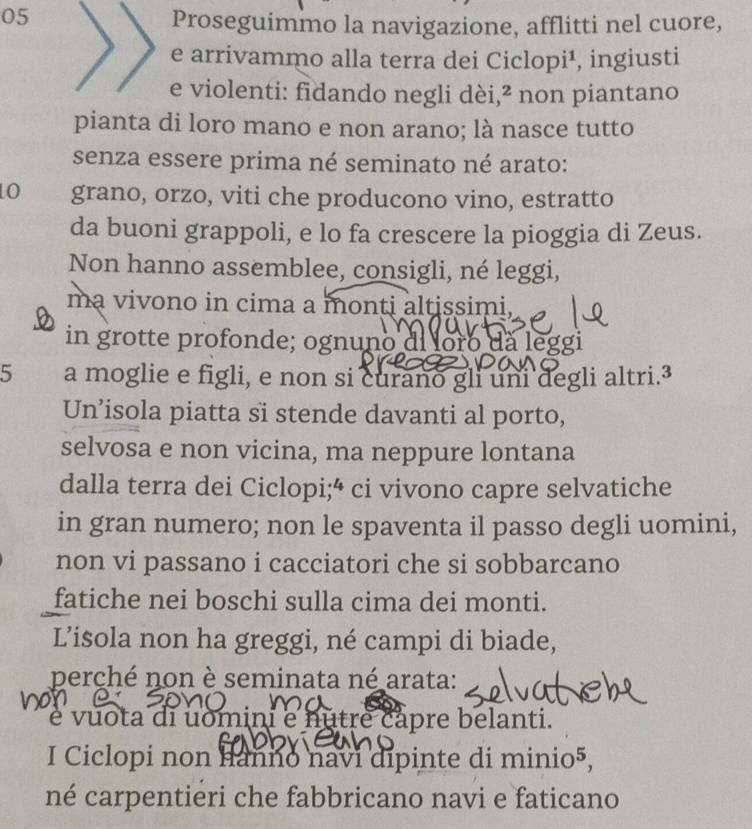 05 Proseguimmo la navigazione, afflitti nel cuore,
e arrivammo alla terra dei Ciclopi¹, ingiusti
e violenti: fidando negli dèi,² non piantano
pianta di loro mano e non arano; là nasce tutto
senza essere prima né seminato né arato:
10 grano, orzo, viti che producono vino, estratto
da buoni grappoli, e lo fa crescere la pioggia di Zeus.
Non hanno assemblee, consigli, né leggi,
ma vivono in cima a monti altissimi,
impartise le
in grotte profonde; ognuno di loro dà leggi
5 a moglie e figli, e non si curano gli uni degli altri.³
Un'isola piatta si stende davanti al porto,
selvosa e non vicina, ma neppure lontana
dalla terra dei Ciclopi;⁴ ci vivono capre selvatiche
in gran numero; non le spaventa il passo degli uomini,
non vi passano i cacciatori che si sobbarcano
fatiche nei boschi sulla cima dei monti.
L'isola non ha greggi, né campi di biade,
perché non è seminata né arata:
selvatiche
non ci sono ma
è vuota di uomini e nutre capre belanti.
I Ciclopi non hanno navi dipinte di minio⁵,
né carpentieri che fabbricano navi e faticano